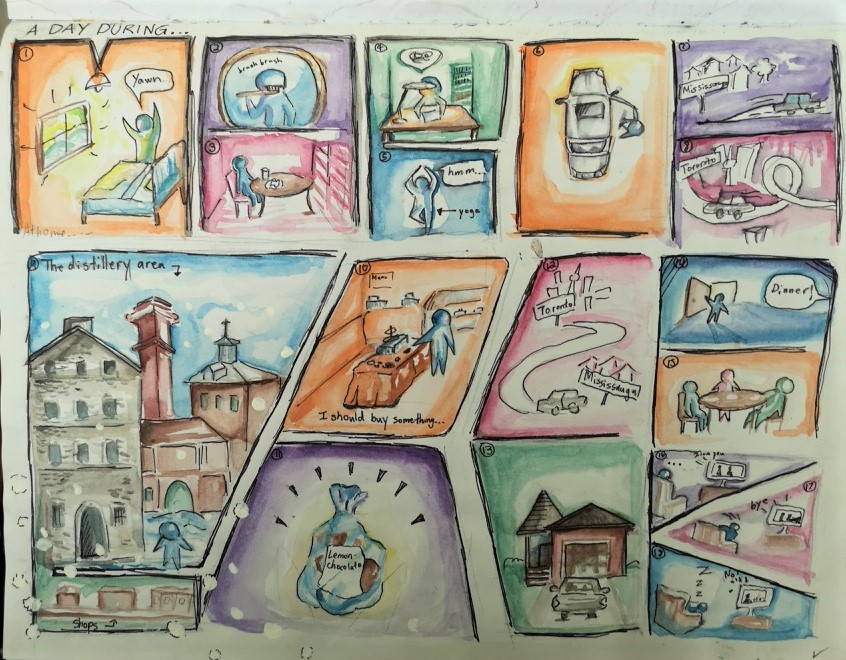 A DAY DURING...
1
Yawn.
At home...
2
brush brush
3
4
5
hmm...
yoga
6
7
Mississauga
8
Toronto
9 The distillery area
Shops
10
Menu
I should buy something...
11
Lemon-
chocolate
12
Toronto
Mississauga
13
14
Dinner!
15
16
17
bye
18
Z
z
z
No..